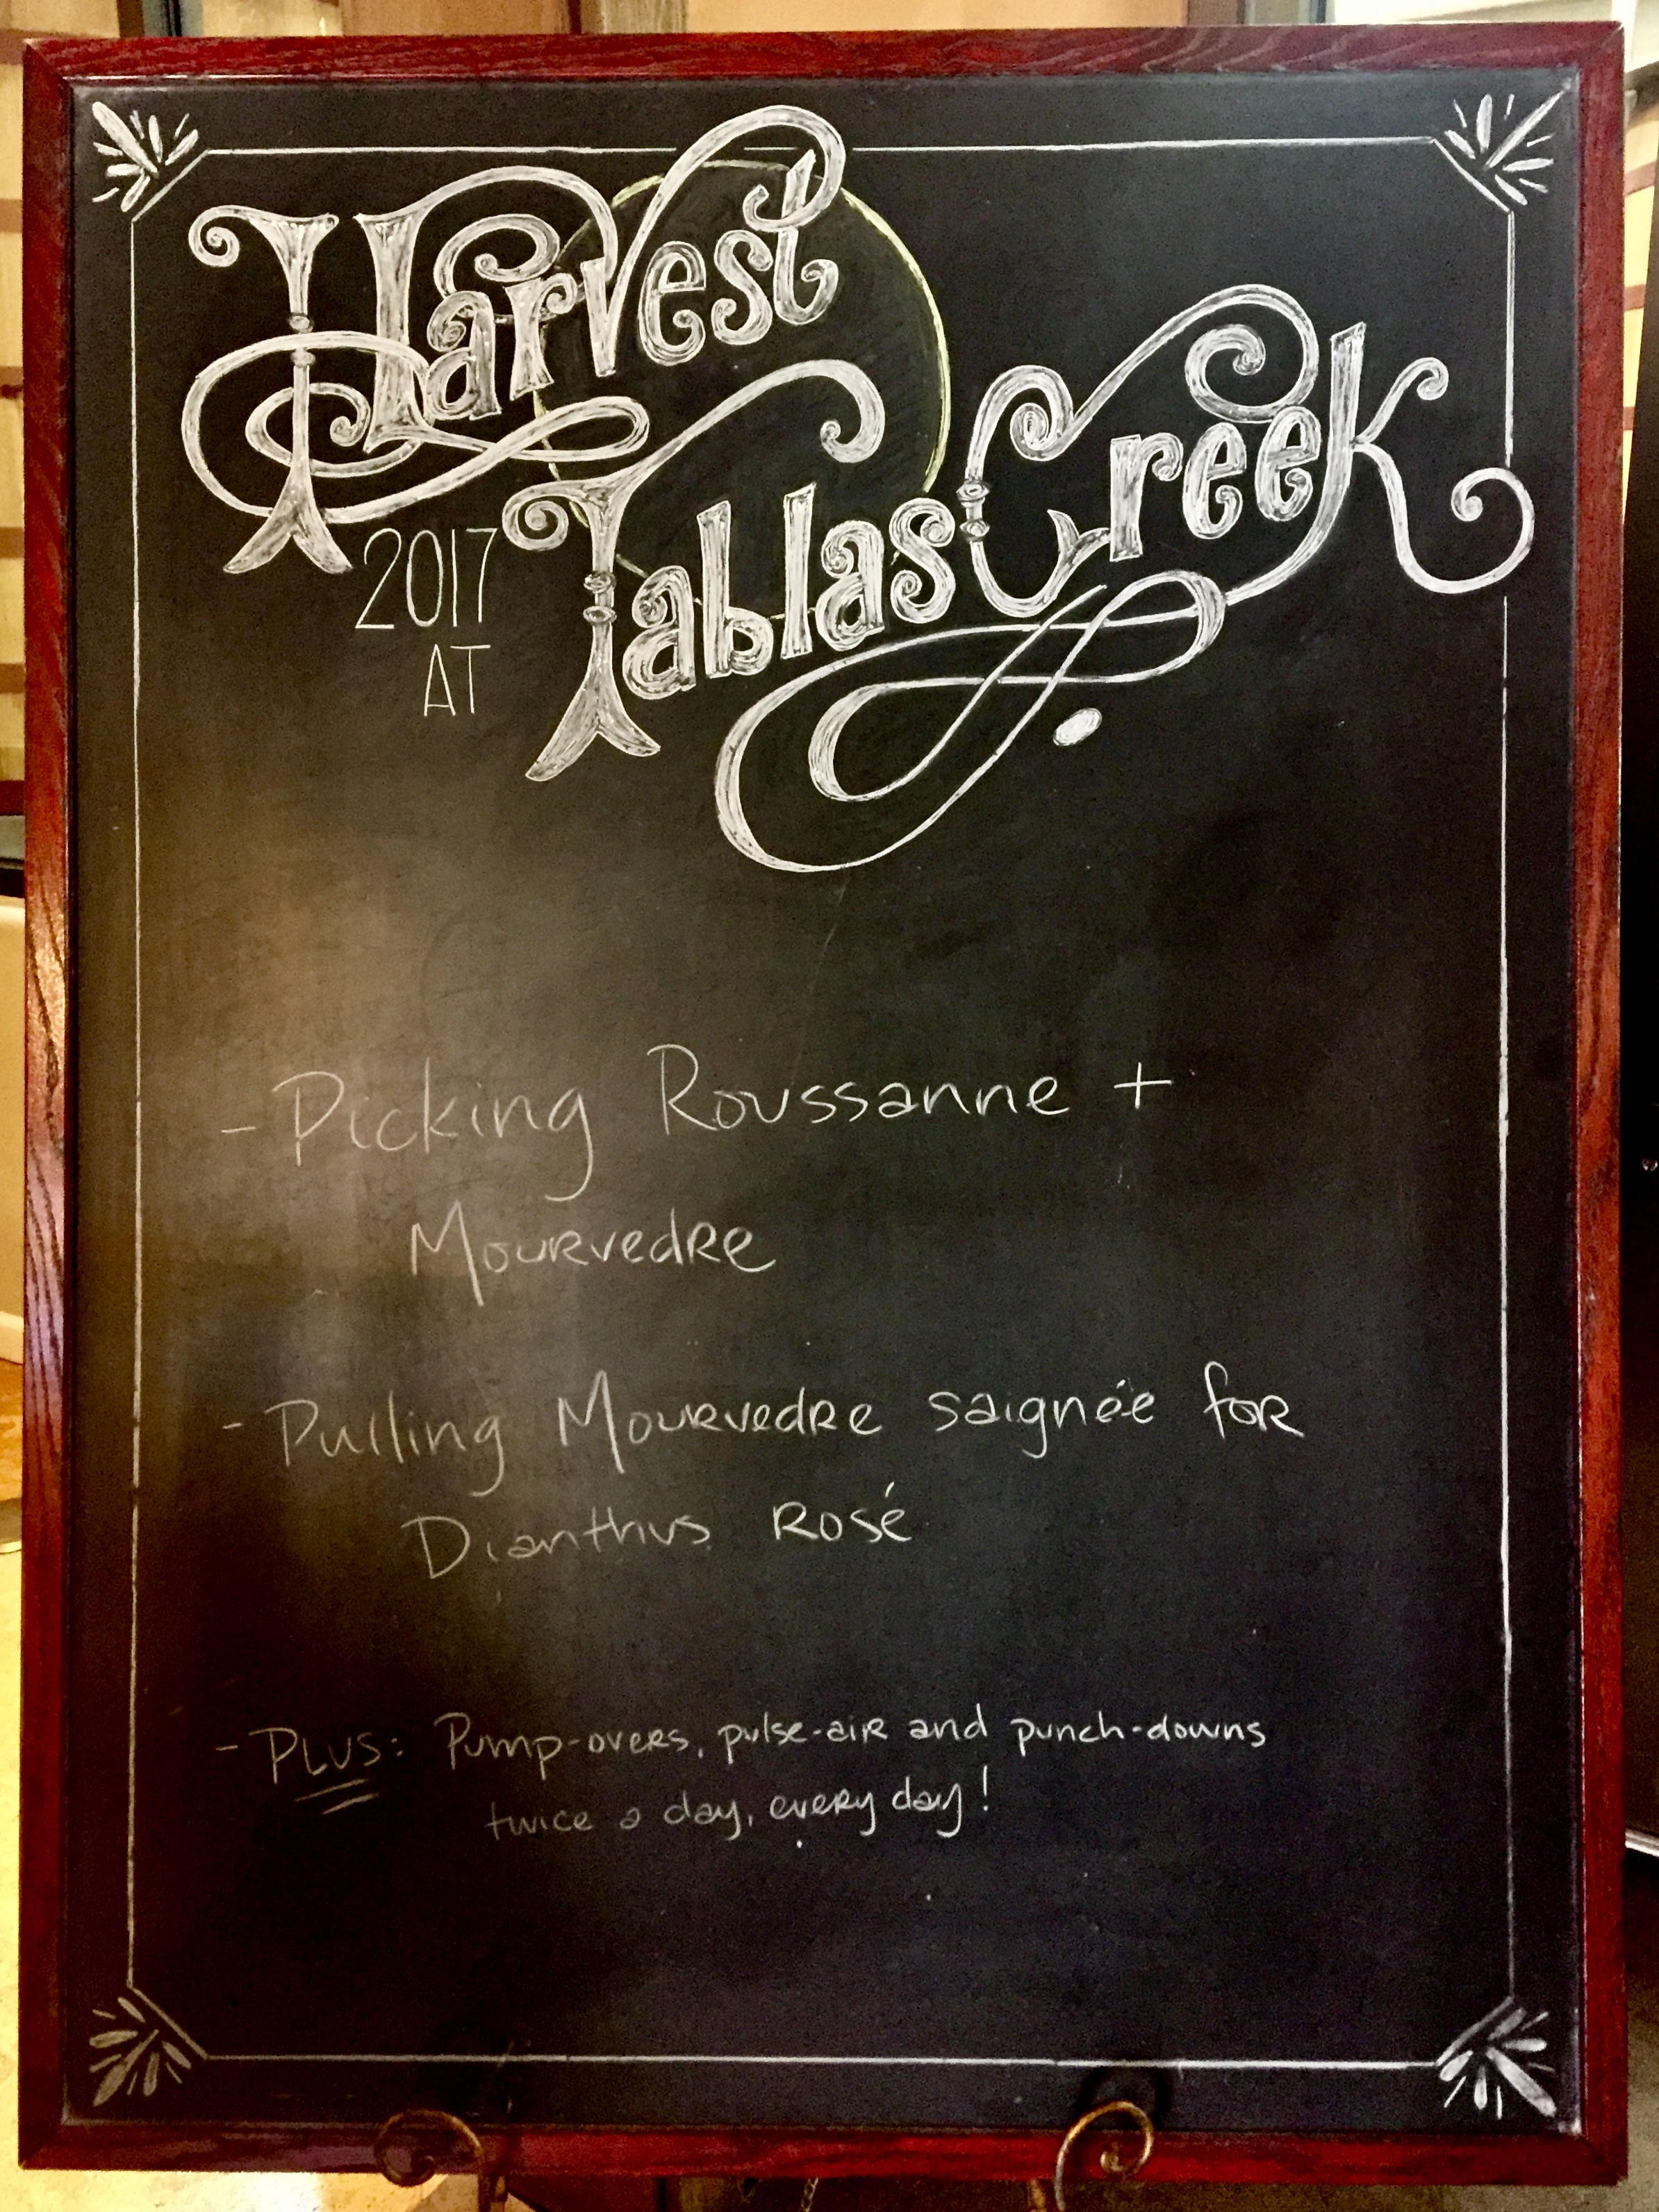 Harvest
2017
AT
Tablas Creek
- Picking Roussanne +
Mourvedre
- Pulling Mourvedre saignée for
Dianthus Rosé
- PLUS: Pump-overs, pulse-air and punch-downs
twice a day, every day!